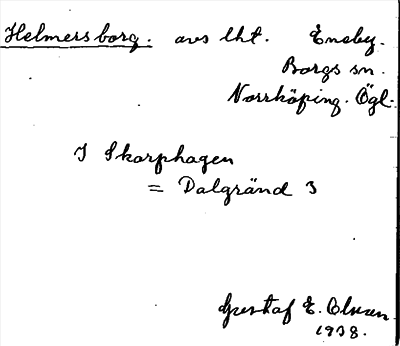 Helmersborg. avs lht. Eneby.
Borgs sn.
Norrköping. Ögl.
I Skarphagen
= Dalgränd 3
Gustaf E. Olsson.
1938.